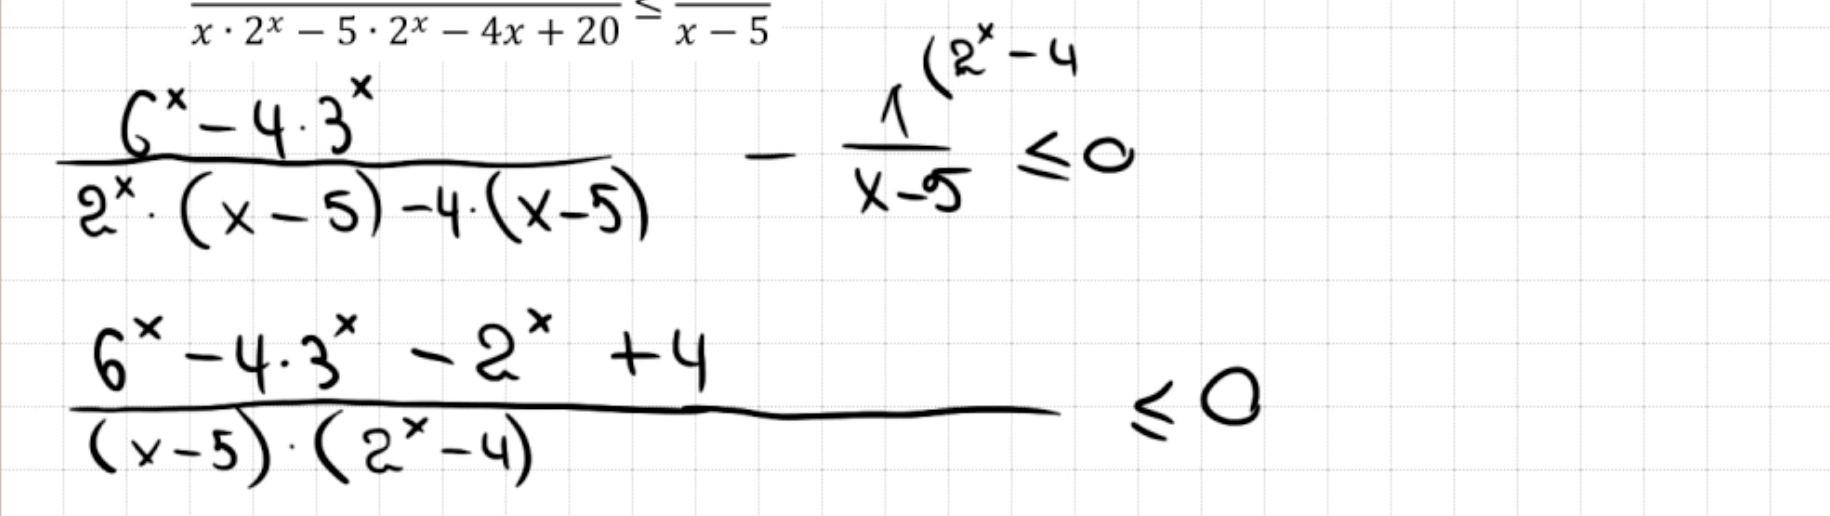 x · 2ˣ − 5 · 2ˣ − 4x + 20 ≤ x − 5
(2ˣ − 4
6ˣ − 4 · 3ˣ / 2ˣ · (x − 5) − 4 · (x − 5) − 1 / x − 5 ≤ 0
6ˣ − 4 · 3ˣ − 2ˣ + 4 / (x − 5) · (2ˣ − 4) ≤ 0